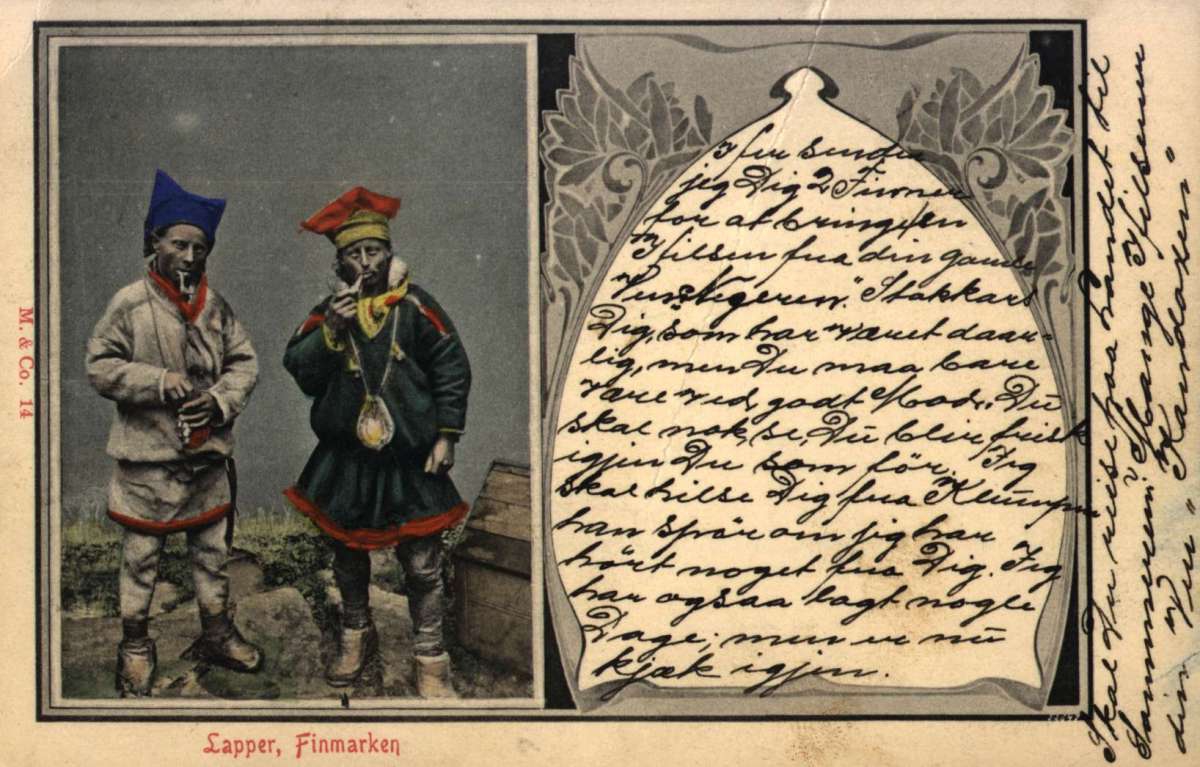 M. & Co. 14
Lapper, Finmarken
Her sender
jeg Dig 2 Finner
for at bringe en
Hilsen fra din gamle
Stakkars
Dig, som har været daar-
lig, men Du maa bare
være ved godt Mod. Du
skal nok se, Du blir frisk
igjen Du som för. Jeg
skal hilse Dig fra
han spör om jeg har
hört noget fra Dig. Jeg
har ogsaa lagt nogle
Dage; men er nu
kjæk igjen.
Skal Du reise paa Landet til
Sommeren? Mange Hilsener
din Ven